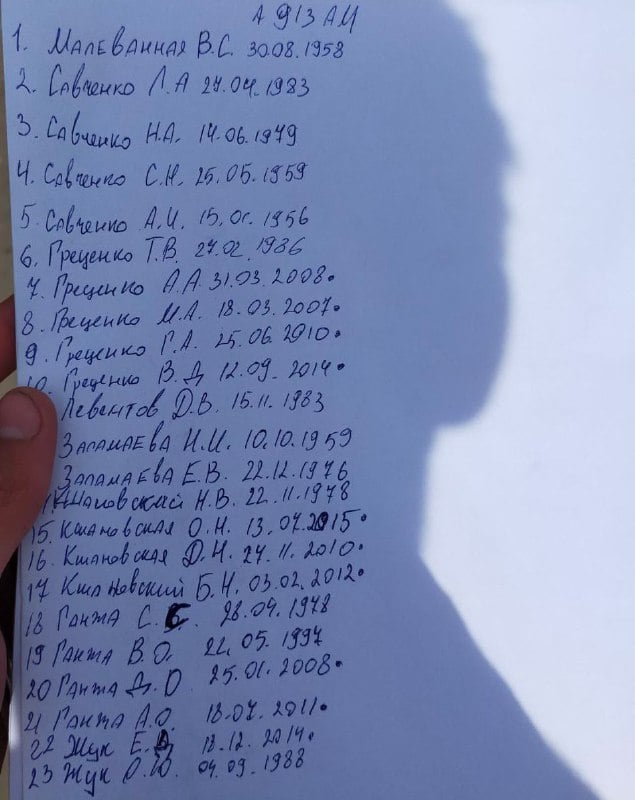 А 913 АМ
1. Малеванная В.С. 30.08.1958
2. Савченко Л.А 27.04.1983
3. Савченко Н.А. 14.06.1979
4. Савченко С.Н. 25.05.1959
5. Савченко А.И. 15.01.1956
6. Греценко Т.В. 27.02.1986
7. Греценко А.А. 31.03.2008.
8. Греценко М.А. 18.03.2007.
9. Греценко Г.А. 25.06.2010.
10. Греценко В.Д 12.09.2014.
Левентов Д.В. 15.11.1983
Заламаева Н.И. 10.10.1959
Заламаева Е.В. 22.12.1976
Кшановский Н.В. 22.11.1978
15. Кшановская О.Н. 13.07.2015.
16. Кшановская Д.Н. 27.11.2010.
17 Кшановский Б.Н. 03.02.2012.
18 Ганжа С. 28.09.1978
19 Ганжа В.О. 22.05.1997
20 Ганжа Д.О 25.01.2008.
21 Ганжа А.О. 18.07.2011.
22 Жук Е. 18.12.2014.
23 Жук 04.09.1988